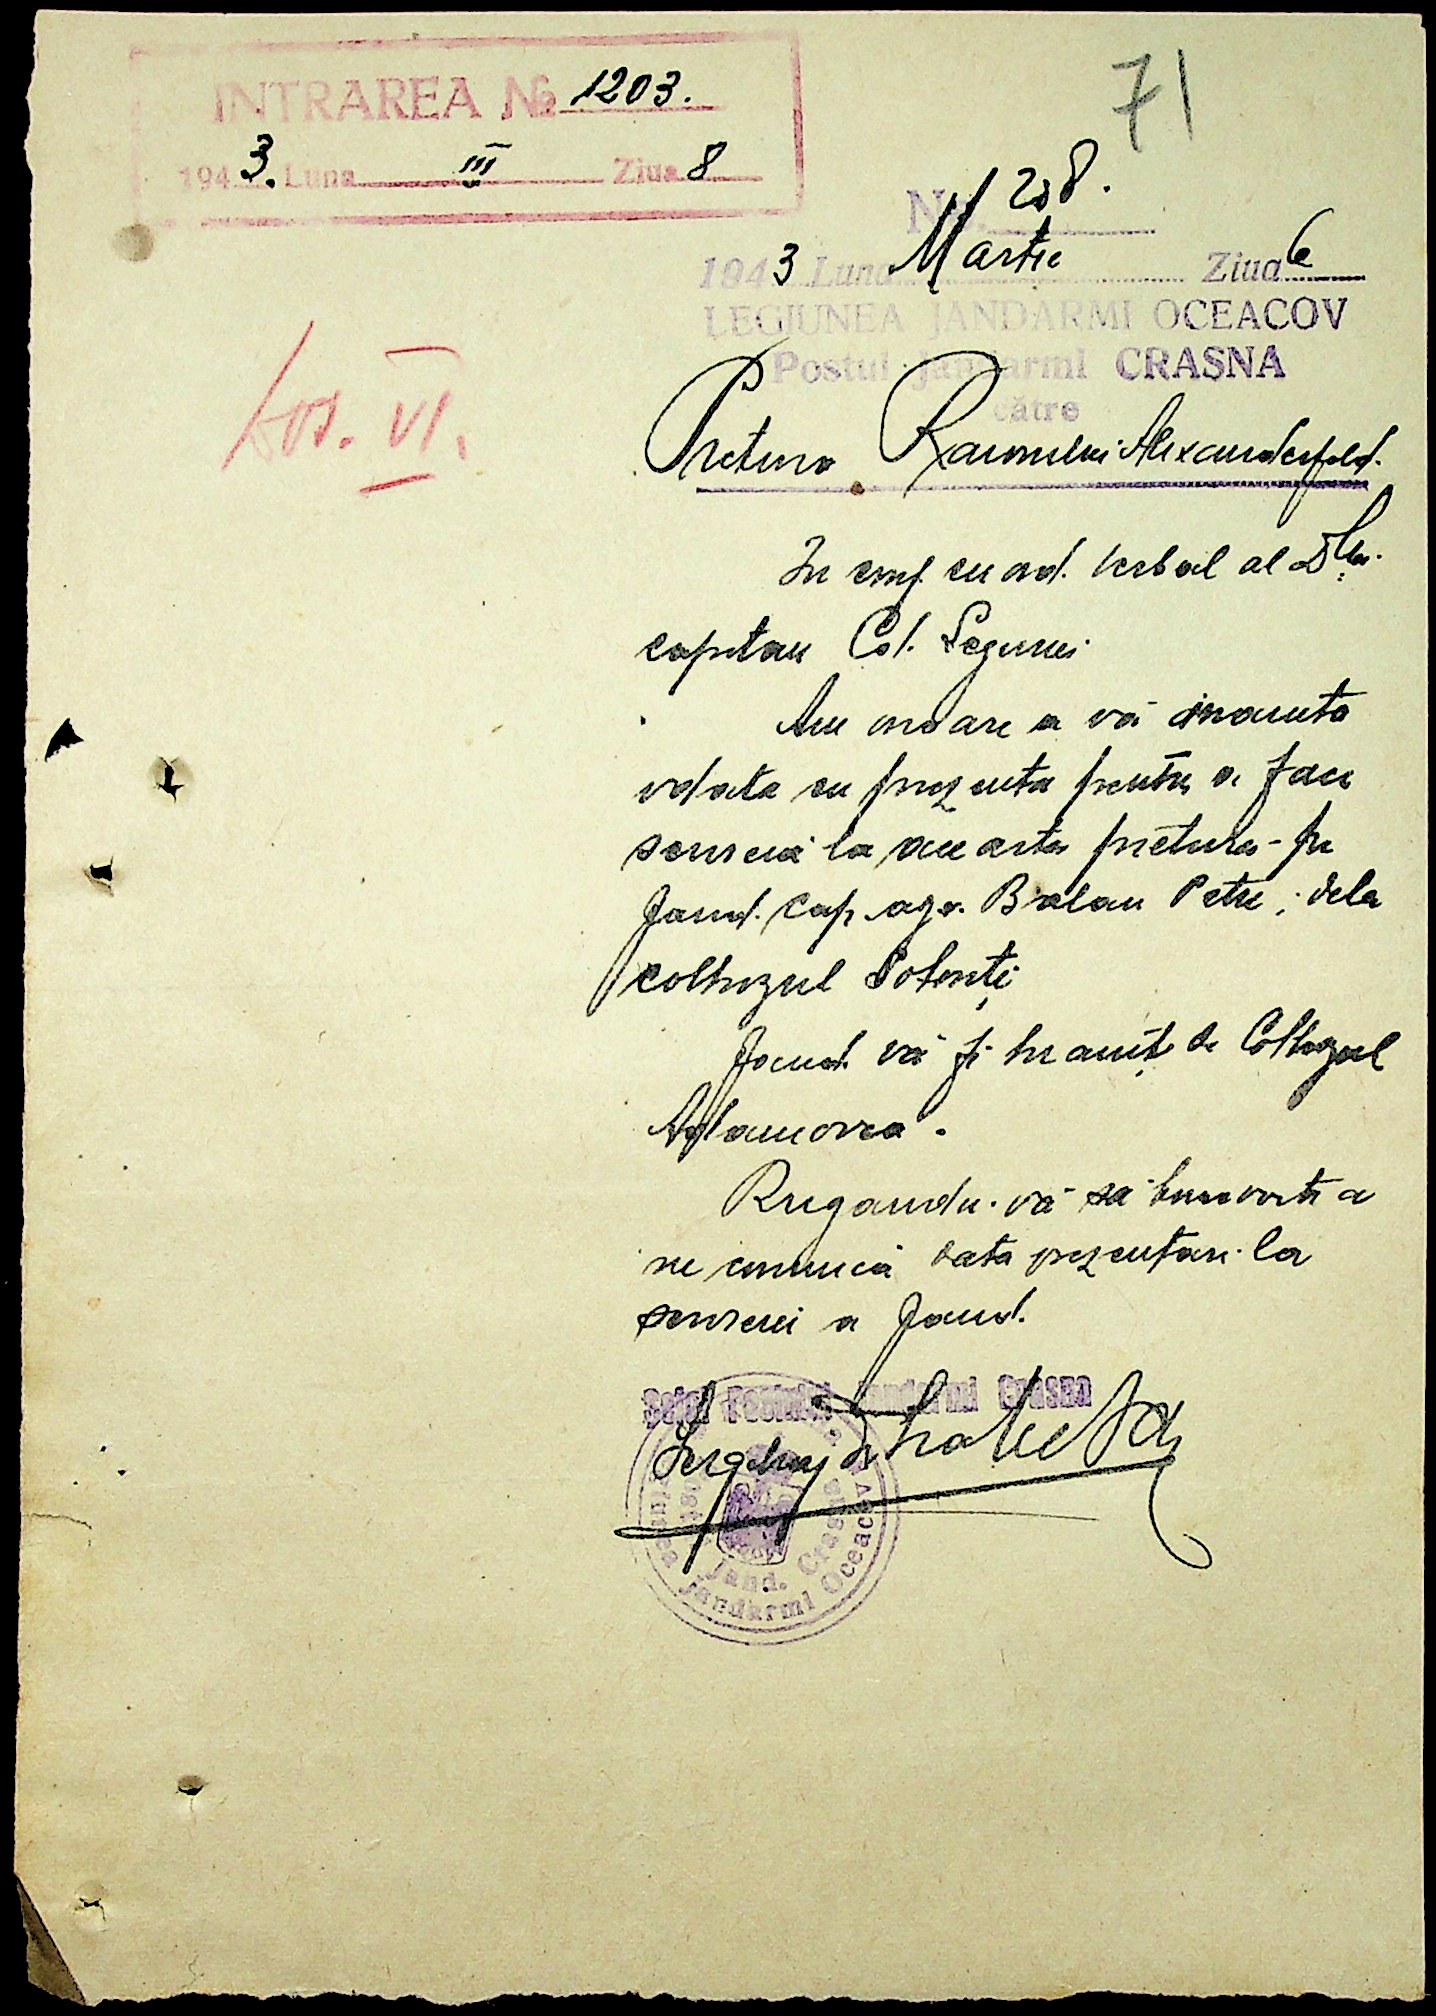 INTRAREA № 1203.
1943. Luna III Ziua 8
71
No. 208.
1943 Luna Martie Ziua 6
LEGIUNEA JANDARMI OCEACOV
Postul Jandarmi CRASNA
către
Pretura Raionului Alexanderfeld.
Dos. VI.
In conf. cu ord. verbal al Dlui
capitan Col. Legiunei
Am onoare a vă inainta
odata cu prezenta pentru a face
serviciu la aceasta pretura - pe
Jand. cap. ago. Balan Petre, dela
colhozul
Jand. va fi hranit de Colhozul
Adamovca.
Rugandu-vă să binevoiti a
ne comunica data prezentari la
serviciu a Jand.
Seful Postului Jandarmi Crasna
Legiunea Jandarmi Oceacov
Jand. Crasna